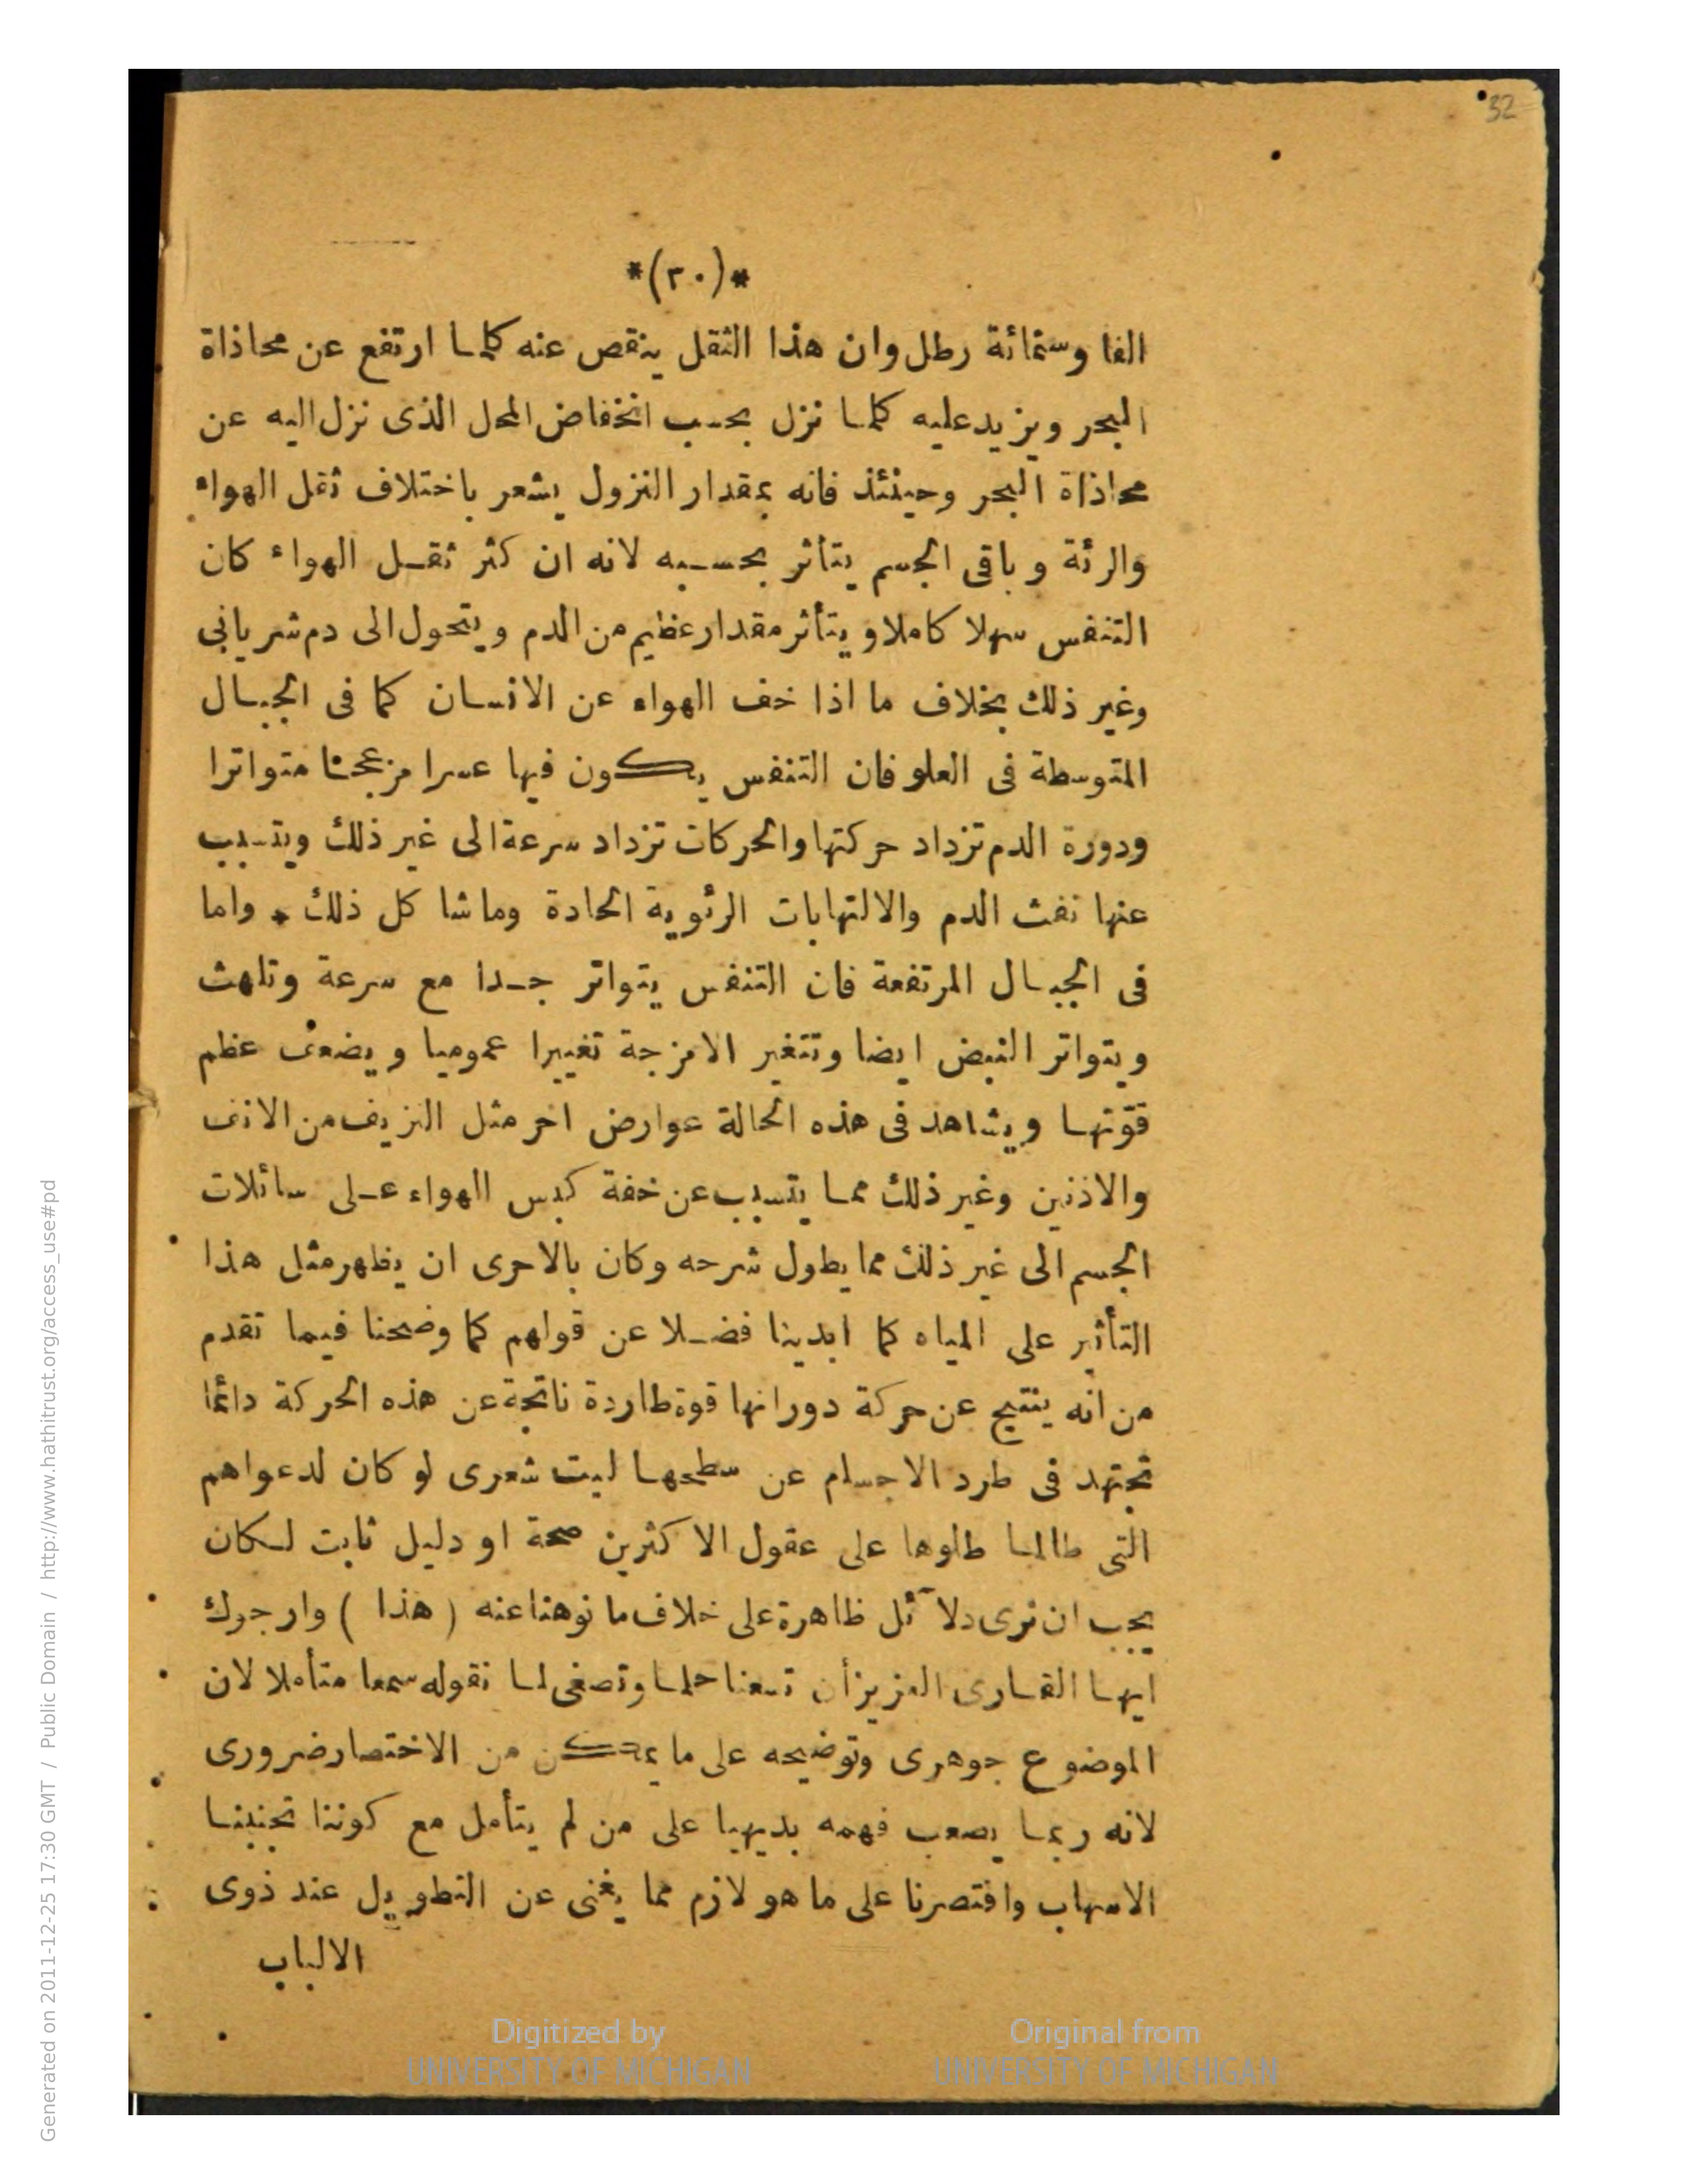 32
*(٣٠)*
الفا وستمائة رطل وان هذا الثقل ينقص عنه كلما ارتفع عن محاذاة
البحر ويزيد عليه كلما نزل بحسب انخفاض المحل الذى نزل اليه عن
محاذاة البحر وحينئذ فانه بمقدار النزول يشعر باختلاف ثقل الهواء
والرئة وباقى الجسم يتأثر بحسبه لانه ان كثر ثقل الهواء كان
التنفس سهلا كاملا ويتأثر مقدار عظيم من الدم ويتحول الى دم شريانى
وغير ذلك بخلاف ما اذا خف الهواء عن الانسان كما فى الجبال
المتوسطة فى العلو فان التنفس يكون فيها عسرا مزعجا متواترا
ودورة الدم تزداد حركتها والحركات تزداد سرعة الى غير ذلك ويتسبب
عنها نفث الدم والالتهابات الرئوية الحادة وماشا كل ذلك * واما
فى الجبال المرتفعة فان التنفس يتواتر جدا مع سرعة وتلهث
ويتواتر النبض ايضا وتتغير الامزجة تغييرا عموميا ويضعف عظم
قوّتها ويشاهد فى هذه الحالة عوارض اخر مثل النزيف من الانف
والاذنين وغير ذلك مما يتسبب عن خفة كبس الهواء على سائلات
الجسم الى غير ذلك مما يطول شرحه وكان بالاحرى ان يظهر مثل هذا
التأثير على المياه كما ابدينا فضلا عن قولهم كما وضحنا فيما تقدم
من انه ينتيج عن حركة دورانها قوة طاردة ناتجة عن هذه الحركة دائما
تجتهد فى طرد الاجسام عن سطحها ليت شعرى لو كان لدعواهم
التى طالما طلوها على عقول الاكثرين صحة او دليل ثابت لكان
يجب ان نرى دلآئل ظاهرة على خلاف ما نوهنا عنه ( هذا ) وارجوك
ايها القارى العزيز أن تسعنا حلما وتصغى لما نقوله سمعا متأملا لان
الموضوع جوهرى وتوضيحه على ما يمكن من الاختصار ضرورى
لانه ربما يصعب فهمه بديهيا على من لم يتأمل مع كوننا تجنبنا
الاسهاب واقتصرنا على ما هو لازم مما يغنى عن التطويل عند ذوى
الالباب
Digitized by
UNIVERSITY OF MICHIGAN
Original from
UNIVERSITY OF MICHIGAN
Generated on 2011-12-25 17:30 GMT / Public Domain / http://www.hathitrust.org/access_use#pd